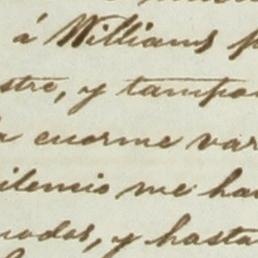 á Williams p
stre, y tampo
a enorme var
ilencio me ha
uodos, y hasta